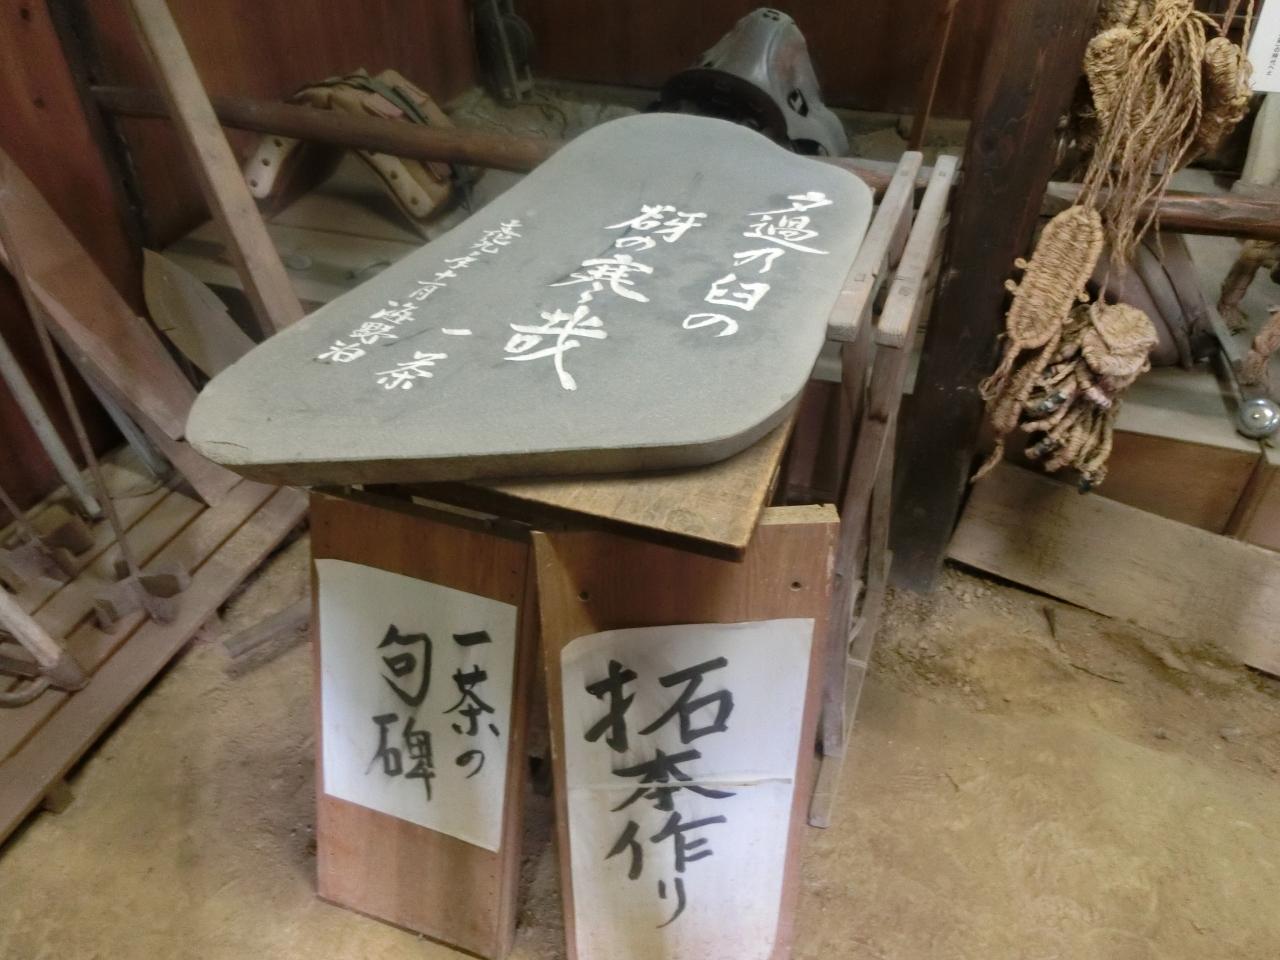 夕過乃臼の
谺の寒哉
一茶
一茶の
句碑
拓本作り